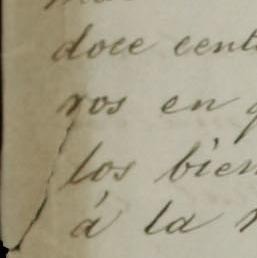 doce cent
ros en
los bien
á la